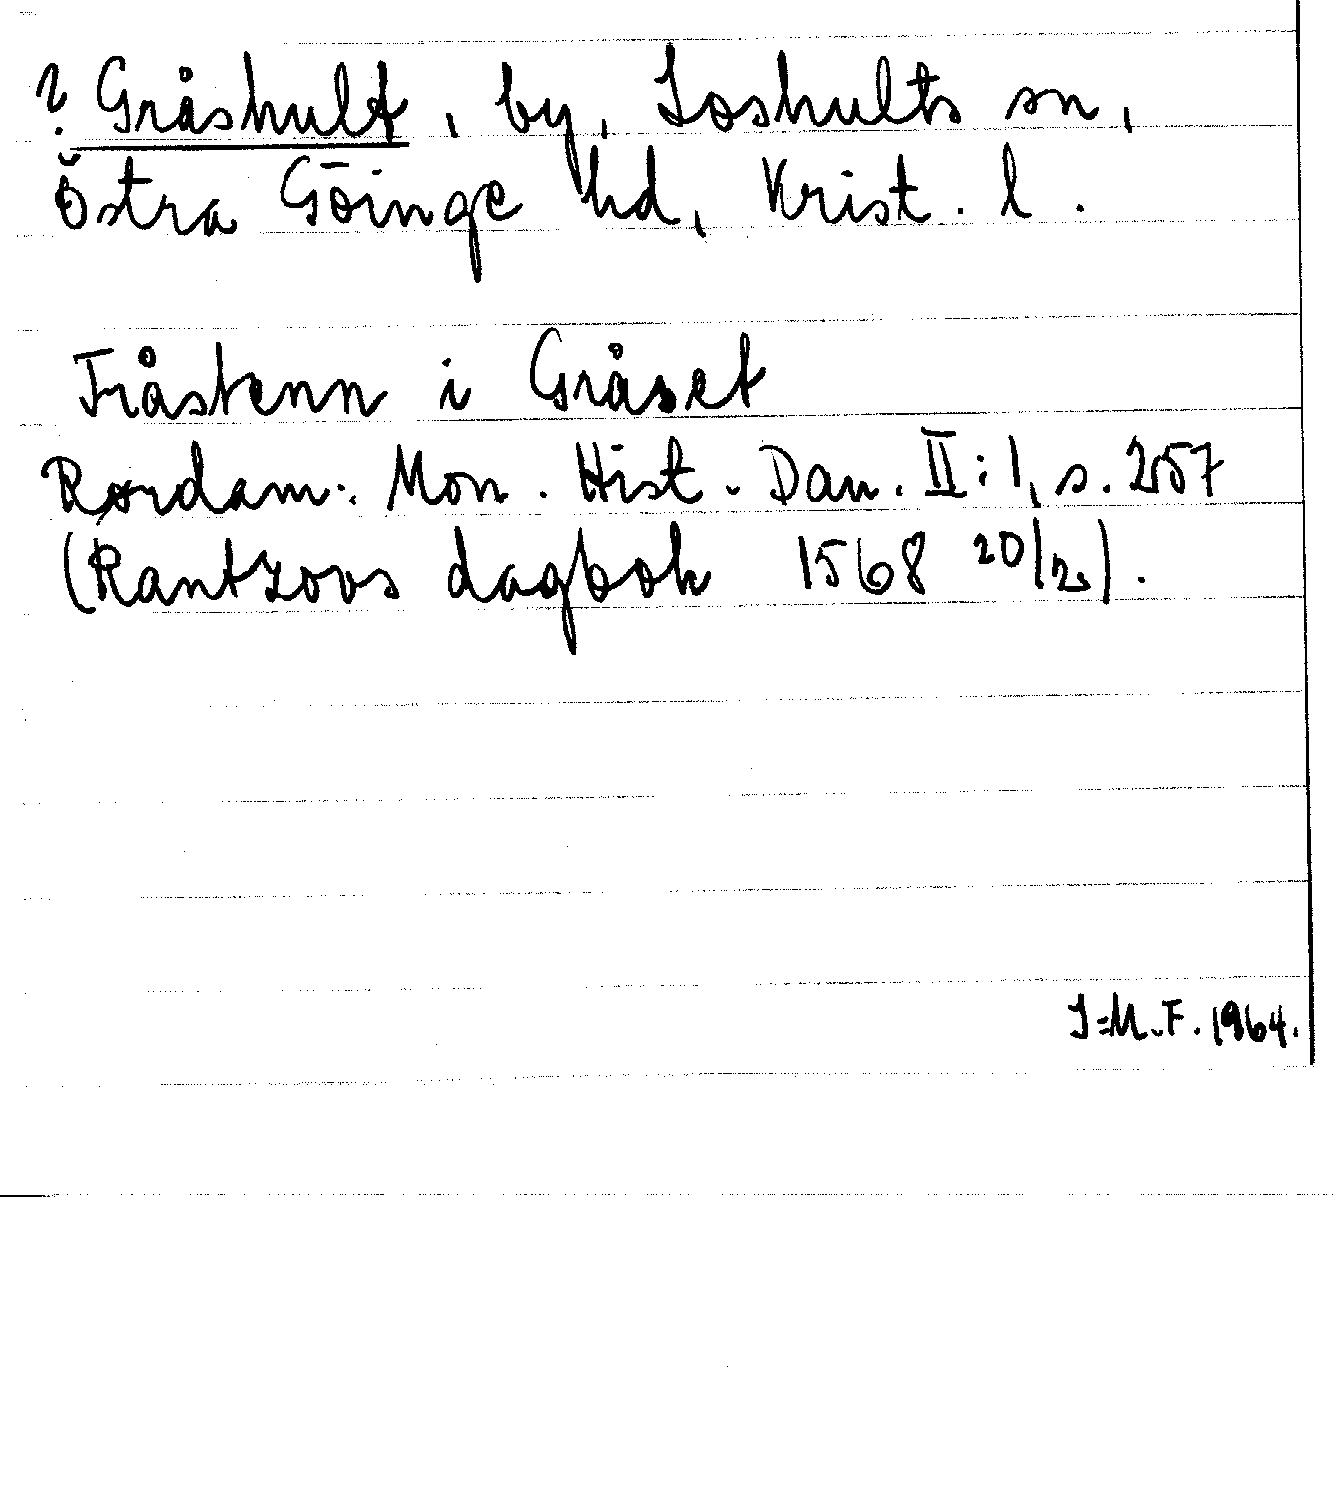 ? Gråshult, by, Loshults sn,
Östra Göinge hd, Krist. l.
Fråstenn i Gråset
Rørdam: Mon. Hist. Dan. II:1, s. 257
(Rantzovs dagbok 1568 20/2).
I-M.F. 1964.